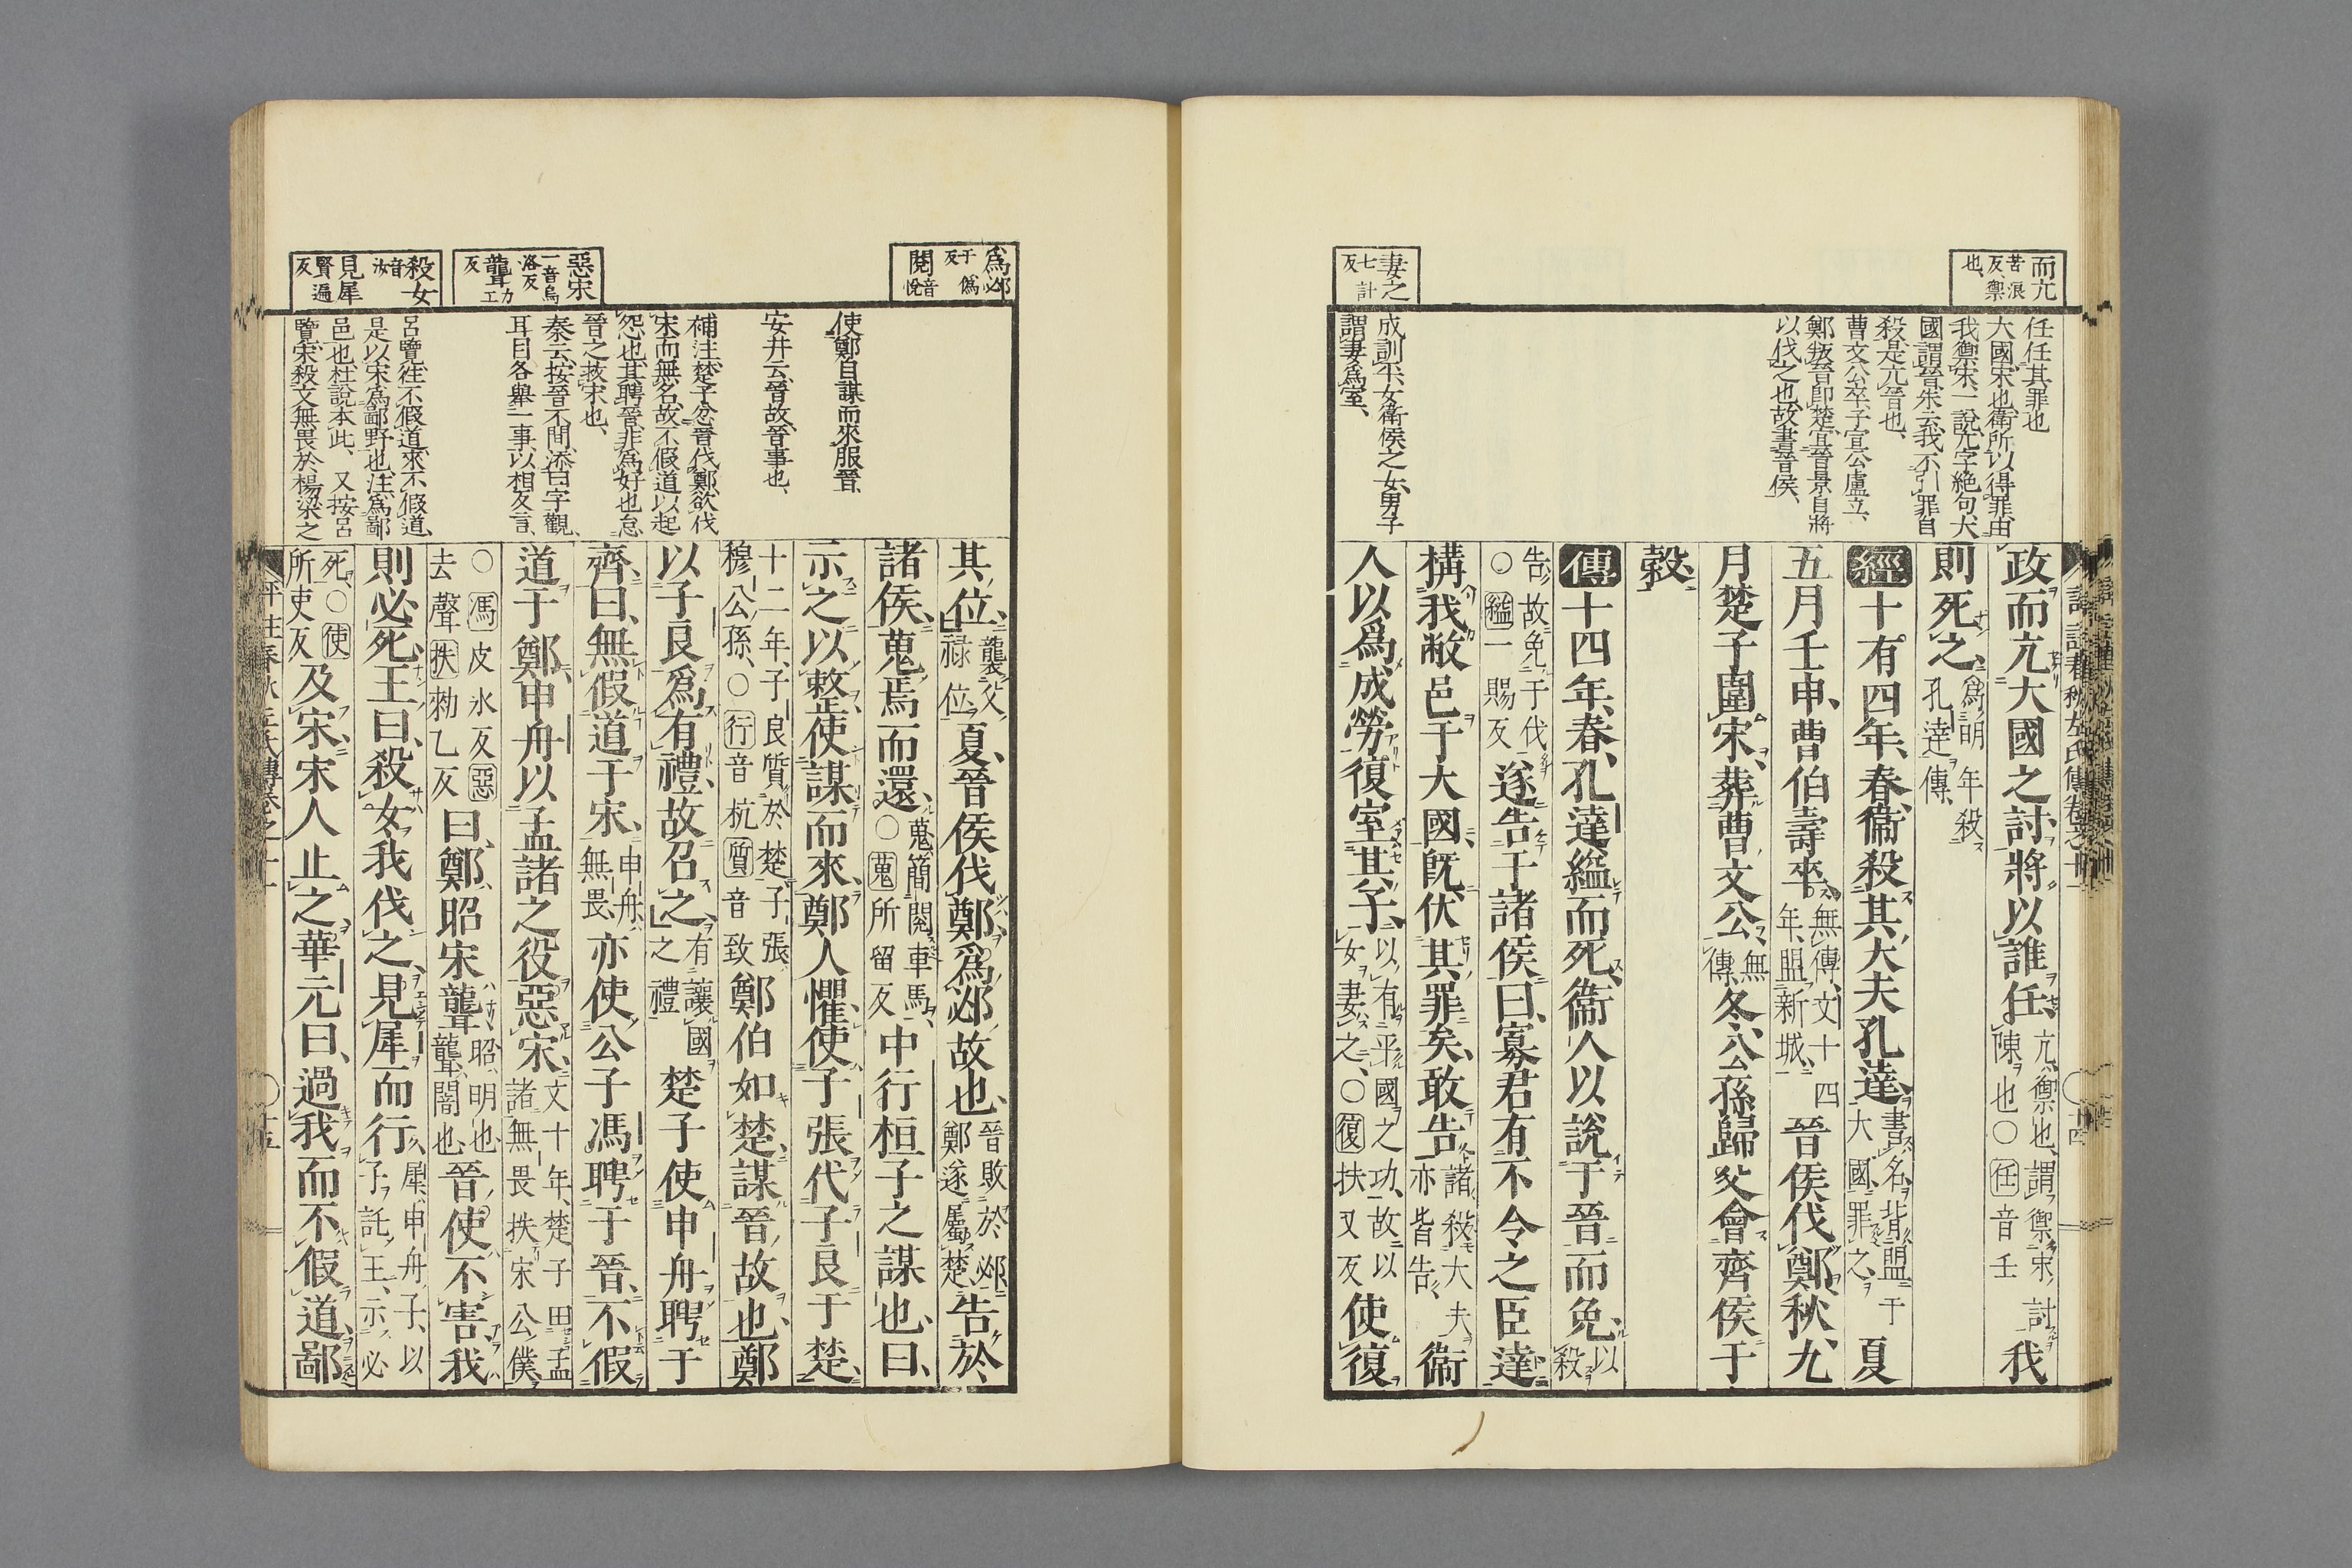 而亢 苦浪反、禦也、
妻之 七計反
任任其罪也
大國、宋也、衛所以得罪、由
我禦宋、一說、亢字絶句、大
國、謂晉、朱云、我不引罪自
殺、是亢晉也、
曹文公卒、子宣公廬立、
鄭叛晉卽楚、宜晉景自將
以伐之也、故書晉侯、
成訓平、女、衛侯之女、男子
謂妻爲室、
政而亢大國之討、將以誰任、亢、禦也、謂禦宋討陳也○任音壬我
則死之、爲明年殺孔達傳、
經十有四年、春、衞殺其大夫孔達、書名、背盟于大國、罪之、夏
五月壬申、曹伯壽卒、無傳、文十四年、盟新城、晉侯伐鄭、秋、九
月楚子圍宋、葬曹文公、無傳、冬、公孫歸父會齊侯于
穀、
傳十四年、春、孔達縊而死、衞人以說于晉而免、以殺
告、故免于伐○縊一賜反遂告于諸侯曰、寡君有不令之臣達
構我敝邑于大國、既伏其罪矣、敢告、諸殺大夫亦皆告、衞
人以爲成勞、復室其子、以有平國之功、故以女妻之、○復扶又反使復
爲邲 于僞反 閱 音悅
惡宋 一音烏洛反 聾 力工反
殺女 音汝 見犀 賢遍反
使鄭自謀而來服晉、
安井云、晉故、晉事也、
補注、楚子忿晉伐鄭、欲伐
宋而無名、故不假道以起
怨也、其聘晉、非爲好也、怠
晉之救宋也、
秦云、按晉不間、添曰字觀、
耳目各舉一事、以相反言、
呂覽、往不假道、來不假道、
是以宋爲鄙野也、注、爲鄙
邑也、杜說本此、又按呂
覽、宋殺文無畏於楊梁之
其位、襲父祿位、夏、晉侯伐鄭、爲邲故也、晉敗於邲、鄭遂屬楚、告於
諸侯、蒐焉而還、蒐、簡閱車馬、○蒐所留反中行桓子之謀也、曰、
示之以整、使謀而來、鄭人懼、使子張代子良于楚、
十二年、子良質於楚、子張、穆公孫、○行音杭質音致鄭伯如楚、謀晉故也、鄭
以子良爲有禮、故召之、有讓國之禮楚子使申舟聘于
齊、曰、無假道于宋、申舟、無畏、亦使公子馮聘于晉、不假
道于鄭、申舟以孟諸之役惡宋、文十年、楚子田孟諸、無畏抶宋公僕、
○馮皮氷反惡去聲抶勑乙反曰、鄭昭宋聾、昭、明也、聾、闇也、晉使不害、我
則必死、王曰、殺女、我伐之、見犀而行、犀、申舟子、以子託王、示必
死、○使所吏反及宋、宋人止之、華元曰、過我而不假道、鄙